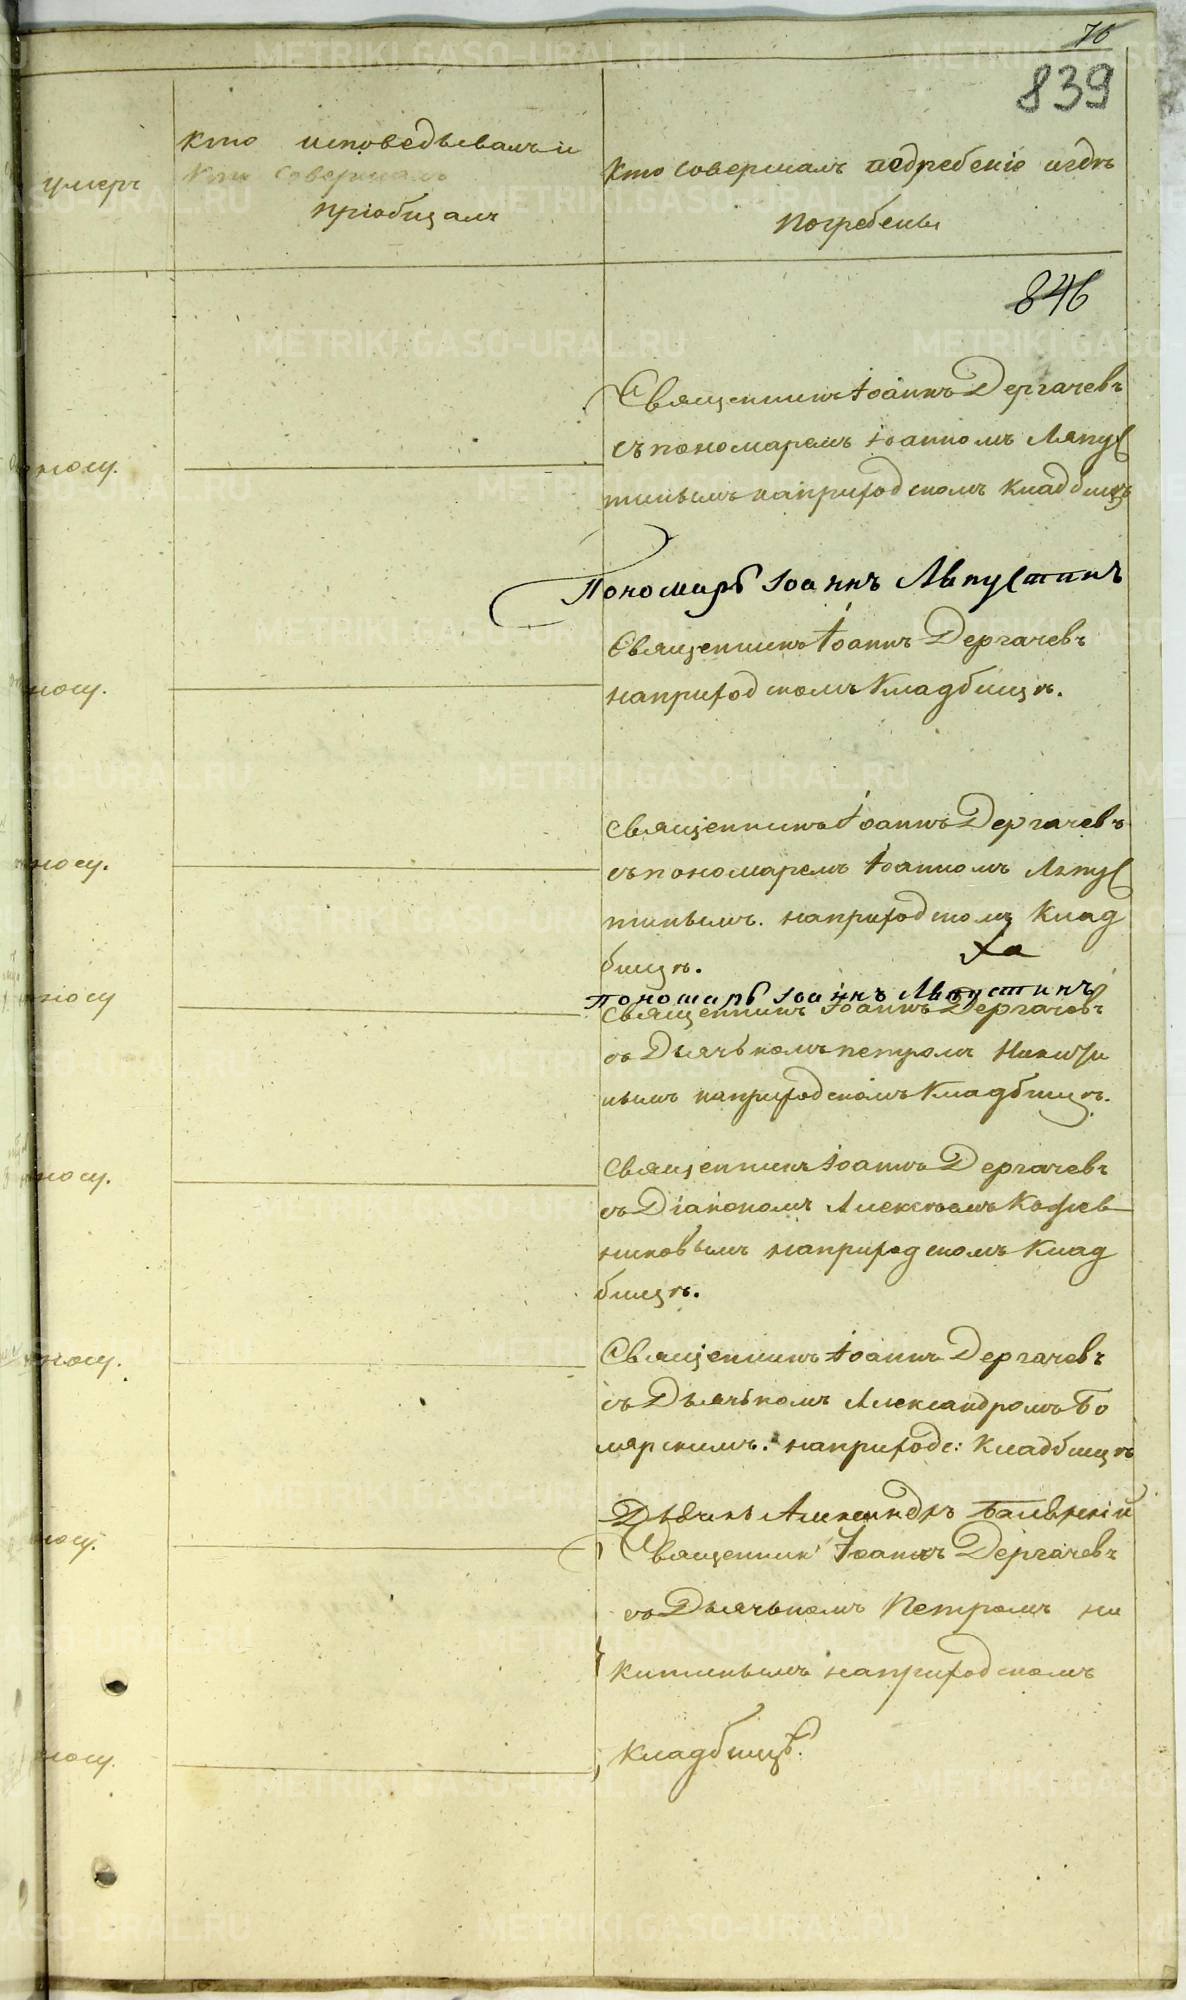 76
839
умеръ
кто исповѣдывалъ и
кто совершалъ
пріобщалъ
кто совершалъ погребеніе и гдѣ
погребены
846
Священникъ Іоаннъ Дергачевъ
съ пономаремъ Іоанномъ Ляпус
тинымъ на приходскомъ кладбищѣ
поносу.
Пономарь Іоаннъ Ляпустинъ
Священникъ Іоаннъ Дергачевъ
на приходскомъ кладбищѣ.
поносу.
Священникъ Іоаннъ Дергачевъ
съ пономаремъ Іоанномъ Ляпус
тинымъ. на приходскомъ клад
бищѣ.
поносу.
Пономарь Іоаннъ Ляпустинъ
Священникъ Іоаннъ Дергачевъ
съ Дьячькомъ Петромъ Никити
нымъ на приходскомъ кладбищѣ.
поносу
Священникъ Іоаннъ Дергачевъ
съ Діакономъ Алексѣемъ Кожев
никовымъ на приходскомъ клад
бищѣ.
поносу.
Священникъ Іоаннъ Дергачевъ
съ Дьячькомъ Александромъ Бо
мярскимъ. на приходс: кладбищѣ
поносу.
Дьячекъ Александръ
Священникъ Іоаннъ Дергачевъ
съ Дьячькомъ Петромъ Ни
китинымъ на приходскомъ
кладбищѣ.
носу.
носу.
METRIKI.GASO-URAL.RU